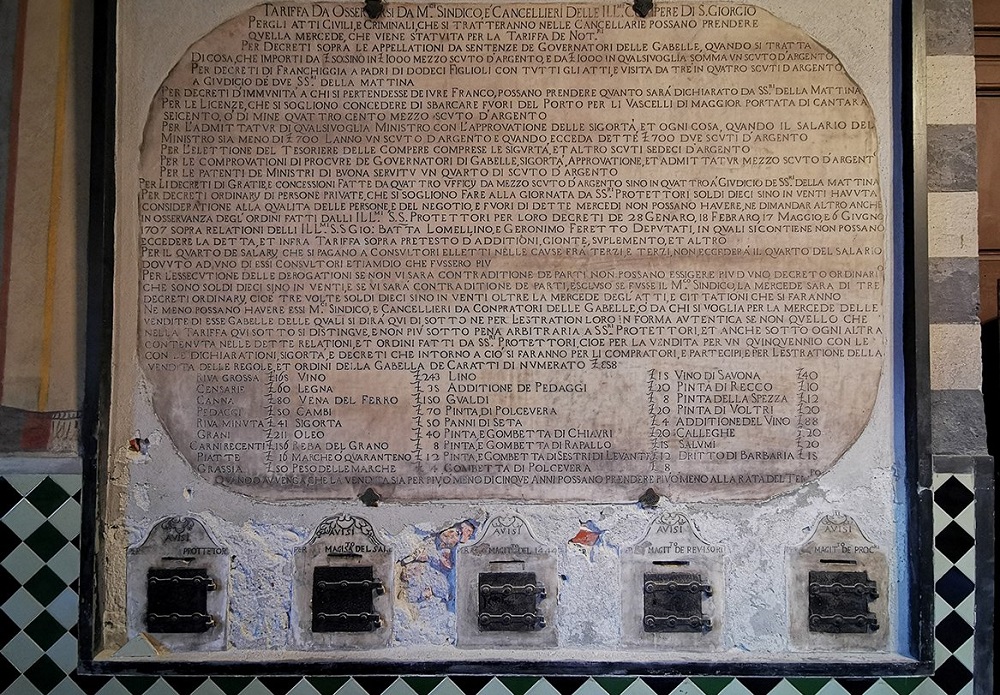 TARIFFA DA OSSERVARSI DA M.CI SINDICO, E CANCELLIERI DELLE ILL.ME COMPERE DI S. GIORGIO
PERGLI ATTI CIVILI, E CRIMINALI, CHE SI TRATTERANNO NELLE CANCELLARIE POSSANO PRENDERE
QUELLA MERCEDE, CHE VIENE STATVITA PER LA TARIFFA DE NOT.RI
PER DECRETI SOPRA LE APPELLATIONI DA SENTENZE DE GOVERNATORI DELLE GABELLE, QUANDO SI TRATTA
DI COSA, CHE IMPORTI DA £50 SINO IN £1000 MEZZO SCUTO D'ARGENTO, E DA £1000 IN QUALSIVOGLIA SOMMA VN SCVTO D'ARGENTO
PER DECRETI DI FRANCHIGGIA A PADRI DI DODECI FIGLIOLI CON TVTTI GLI ATTI, E VISITA DA TRE IN QUATRO SCVTI D'ARGENTO
A GIVDICIO DE DVE SS.RI DELLA MATTINA
PER DECRETI D'IMMVNITÀ A CHI SI PERTENDESSE DE IVRE FRANCO, POSSANO PRENDERE QUANTO SARÀ DICHIARATO DA SS.RI DELLA MATTINA
PER LE LICENZE, CHE SI SOGLIONO CONCEDERE DI SBARCARE FVORI DEL PORTO PER LI VASCELLI DI MAGGIOR PORTATA DI CANTARA
SEICENTO, O DI MINE QUATTRO CENTO MEZZO SCVTO D'ARGENTO
PER L'ADMITTATVR DI QUALSIVOGLIA MINISTRO CON L'APPROVATIONE DELLE SIGORTÀ, ET OGNI COSA, QUANDO IL SALARIO DEL
MINISTRO SIA MENO DI £700 L'ANNO VN SCVTO D'ARGENTO E QUANDO ECCEDA DETTE £700 DVE SCVTI D'ARGENTO
PER L'ELETTIONE DEL TESORIERE DELLE COMPERE COMPRESE LE SIGVRTÀ, ET ALTRO SCVTI SEDECI D'ARGENTO
PER LE COMPROVATIONI DI PROCVRE DE GOVERNATORI DI GABELLE, SIGORTÀ, APPROVATIONE, ET ADMITTATVR MEZZO SCVTO D'ARGENT
PER LE PATENTE DE MINISTRI DI BUONA SERVITV VN QUARTO DI SCVTO D'ARGENTO
PER LI DECRETI DI GRATIE, E CONCESSIONI FATTE DA QUATTRO VFFICII DA MEZZO SCVTO D'ARGENTO SINO IN QUATTRO A GIVDICIO DE SS.RI DELLA MATTINA
PER DECRETI ORDINARII DI PERSONE PRIVATE, CHE SI SOGLIONO FARE ALLA GIORNATA DA SS.RI PROTETTORI SOLDI DIECI SINO IN VENTI HAVVTA
CONSIDERATIONE ALLA QUALITÀ DELLE PERSONE, E DEL NEGOTIO, E FVORI DI DETTE MERCEDI NON POSSANO HAVERE, NE DIMANDAR ALTRO ANCHE
IN OSSERVANZA DEGL'ORDINI FATTI DALLI ILL.MI S.S. PROTETTORI PER LORO DECRETI DE 28 GENARO, 18 FEBRARO, 17 MAGGIO, E 6 GIVGNO
1707 SOPRA RELATIONI DELLI ILL.MI S.S. GIO: BATTA LOMELLINO, E GERONIMO FERETTO DEPVTATI, IN QUALI SI CONTIENE NON POSSANO
ECCEDERE LA DETTA, ET INFRA TARIFFA SOPRA PRETESTO D'ADDITIONI, GIONTE, SVPLEMENTO, ET ALTRO
PER IL QUARTO DE SALARII, CHE SI PAGANO A CONSULTORI ELETTI NELLE CAVSE FRÀ TERZI, E TERZI, NON ECCEDERÀ IL QUARTO DEL SALARIO
DOVVTO AD VNO DI ESSI CONSULTORI ETIAMDIO CHE FVSSERO PIV
PER L'ESSECVTIONE DELLE DEROGATIONI SE NON VI SARÀ CONTRADITIONE DE PARTI NON POSSANO ESSIGERE PIV D'VNO DECRETO ORDINARI
CHE SONO SOLDI DIECI SINO IN VENTI, E SE VI SARÀ CONTRADITIONE DE PARTI, ESCLVSO SE FVSSE IL M.CO SINDICO, LA MERCEDE SARÀ DI TRE
DECRETI ORDINARII, CIOE TRE VOLTE SOLDI DIECI SINO IN VENTI OLTRE LA MERCEDE DEGL'ATTI, E CITTATIONI CHE SI FARANNO
NE MENO POSSANO HAVERE ESSI M.CI SINDICO, E CANCELLIERI DA COMPRATORI DELLE GABELLE, O DA CHI SI VOGLIA PER LA MERCEDE DELLE
VENDITE DI ESSE GABELLE DELLE QUALI SI DIRÀ QUI DI SOTTO NE PER L'ESTRATION LORO IN FORMA AVTENTICA SE NON QUELLO CHE
NELLA TARIFFA QUI SOTTO SI DISTINGVE, E NON PIV SOTTO PENA ARBITRARIA A SS.RI PROTETTORI, ET ANCHE SOTTO OGNI ALTRA
CONTENVTA NELLE DETTE RELATIONI, ET ORDINI FATTI DA SS.RI PROTETTORI, CIOE PER LA VENDITA PER VN QUINQVENNIO CON LE
CON LE DICHIARATIONI, SIGORTÀ, E DECRETI CHE INTORNO A CIÒ SI FARANNO PER LI COMPRATORI, E PARTECIPI, E PER L'ESTRATIONE DELLA
VENDITA DELLE REGOLE, ET ORDINI DELLA GABELLA DE CARATTI DI NVMERATO £258
RIVA GROSSA £165 VINO £243 LINO £15 VINO DI SAVONA £40
CENSARIE £60 LEGNA £35 ADDITIONE DE PEDAGGI £20 PINTA DI RECCO £10
CANNA £80 VENA DEL FERRO £150 GVALDI £8 PINTA DELLA SPEZZA £12
PEDAGGI £50 CAMBI £70 PINTA DI POLCEVERA £20 PINTA DI VOLTRI £20
RIVA MINVTA £41 SIGORTA £50 PANNI DI SETA £4 ADDITIONE DEL VINO £88
GRANI £211 OLEO £40 PINTA, E GOMBETTA DI CHIAVRI £20 CALLEGHE £20
CARNI RECENTI £116 REBA DEL GRANO £8 PINTA E GOMBETTA DI RAPALLO £15 SALVMI £20
PIATTE £10 MARCHE O QVARANTENO £12 PINTA, E GOMBETTA DI SESTRI DI LEVANTE £12 DRITTO DI BARBARIA £15
GRASSIA £50 PESO DELLE MARCHE £4 GOMBETTA DI POLCEVERA £8
QUANDO AVVENGA CHE LA VENDITA SIA PER PIV O MENO DI CINQVE ANNI POSSANO PRENDERE PIV O MENO ALLA RATA DEL TEMPO
AVISI
PROTTETORI
AVISI
PER MAGIT.TO DEL SALE
AVISI
MAGIT.TO DEL 1444
AVISI
MAGIT.TO DE REVISORI
AVISI
MAGIT.TO DE PROC.RI